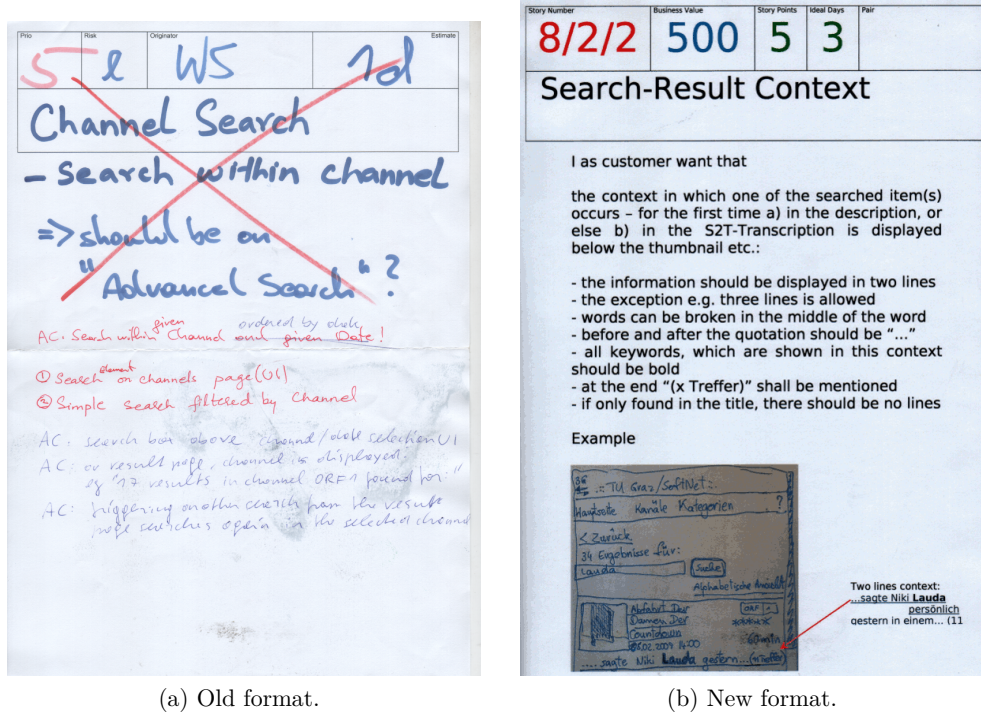 Prio Risk Originator Estimate
5 l WS 1d
Channel Search
- Search within channel
=> should be on
"Advanced Search" ?
given ordered by date
AC: Search within Channel and given Date!
element
① Search on channels page (UI)
② Simple search filtered by Channel
AC: search box above channel/date selection UI
AC: on result page, channel is displayed.
eg "17 results in channel ORF1 found for:"
AC: triggering another search from the result
page searches again in the selected channel
(a) Old format.
Story Number Business Value Story Points Ideal Days Pair
8/2/2 500 5 3
Search-Result Context
I as customer want that
the context in which one of the searched item(s)
occurs – for the first time a) in the description, or
else b) in the S2T-Transcription is displayed
below the thumbnail etc.:
- the information should be displayed in two lines
- the exception e.g. three lines is allowed
- words can be broken in the middle of the word
- before and after the quotation should be “...”
- all keywords, which are shown in this context
should be bold
- at the end “(x Treffer)” shall be mentioned
- if only found in the title, there should be no lines
Example
.::TU Graz/SoftNet::.
Hauptseite Kanäle Kategorien ?
< Zurück
34 Ergebnisse für:
Lauda Suche
Alphabetische
Abfahrt Der ORF
Damen Der
Countdown min
02.2007 14:00
..... sagte Niki Lauda gestern...(
Two lines context:
...sagte Niki Lauda
persönlich
gestern in einem... (11
(b) New format.